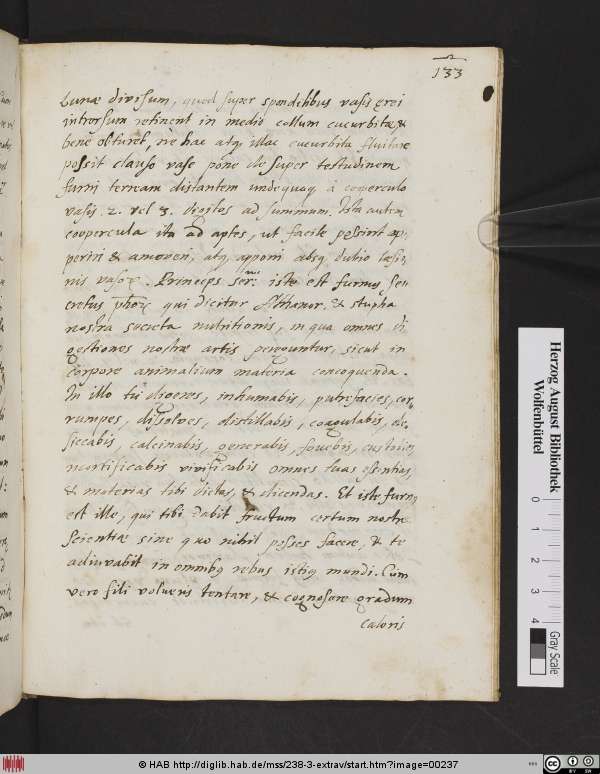 133
Lunæ divisum, quod super spondelibus vasis ęrei
introrsum retinent in medio collum cucurbitæ &
bene obturet, ne hac atq illac cucurbita fluitare
possit clauso vase pone desuper testudinem
furni terream distantem undequaq à cooperculo
vasis 2. vel 3. digitos ad summum. Ista autem
coopercula ita ad aptes, ut facile possint ap-
periri & amoveri, atq apponi absq dubio læsio-
nis vasoꝝ. Princeps ser: iste est furnus se-
cretus qui dicitur Athanor, & stupha
nostra secreta nutritionis, in qua omnes di
gestiones nostræ artis peraguntur, sicut in
Corpore animalium materia concoquenda.
In illo tu digeres, inhumabis, putrefacies, cor-
rumpes, dissolves, distillabis, coagulabis, de-
siccabis, calcinabis, generabis, fovebis, custodies
mortificabis vivificabis omnes tuas essentias,
& materias tibi dictas, & dicendas. Et iste furnꝯ
est ille, qui tibi dabit fructum certum nostræ
Scientiæ sine quo nihil posses facere, & te
adiuvabit in omnibꝯ rebus istiꝯ mundi. Cum
vero fili volueris tentare, & cognoscere gradum
caloris
Herzog August Bibliothek
Wolfenbüttel
0 1 2 3 4
Gray Scale
© HAB http://diglib.hab.de/mss/238-3-extrav/start.htm?image=00237
HAB
CC BY SA